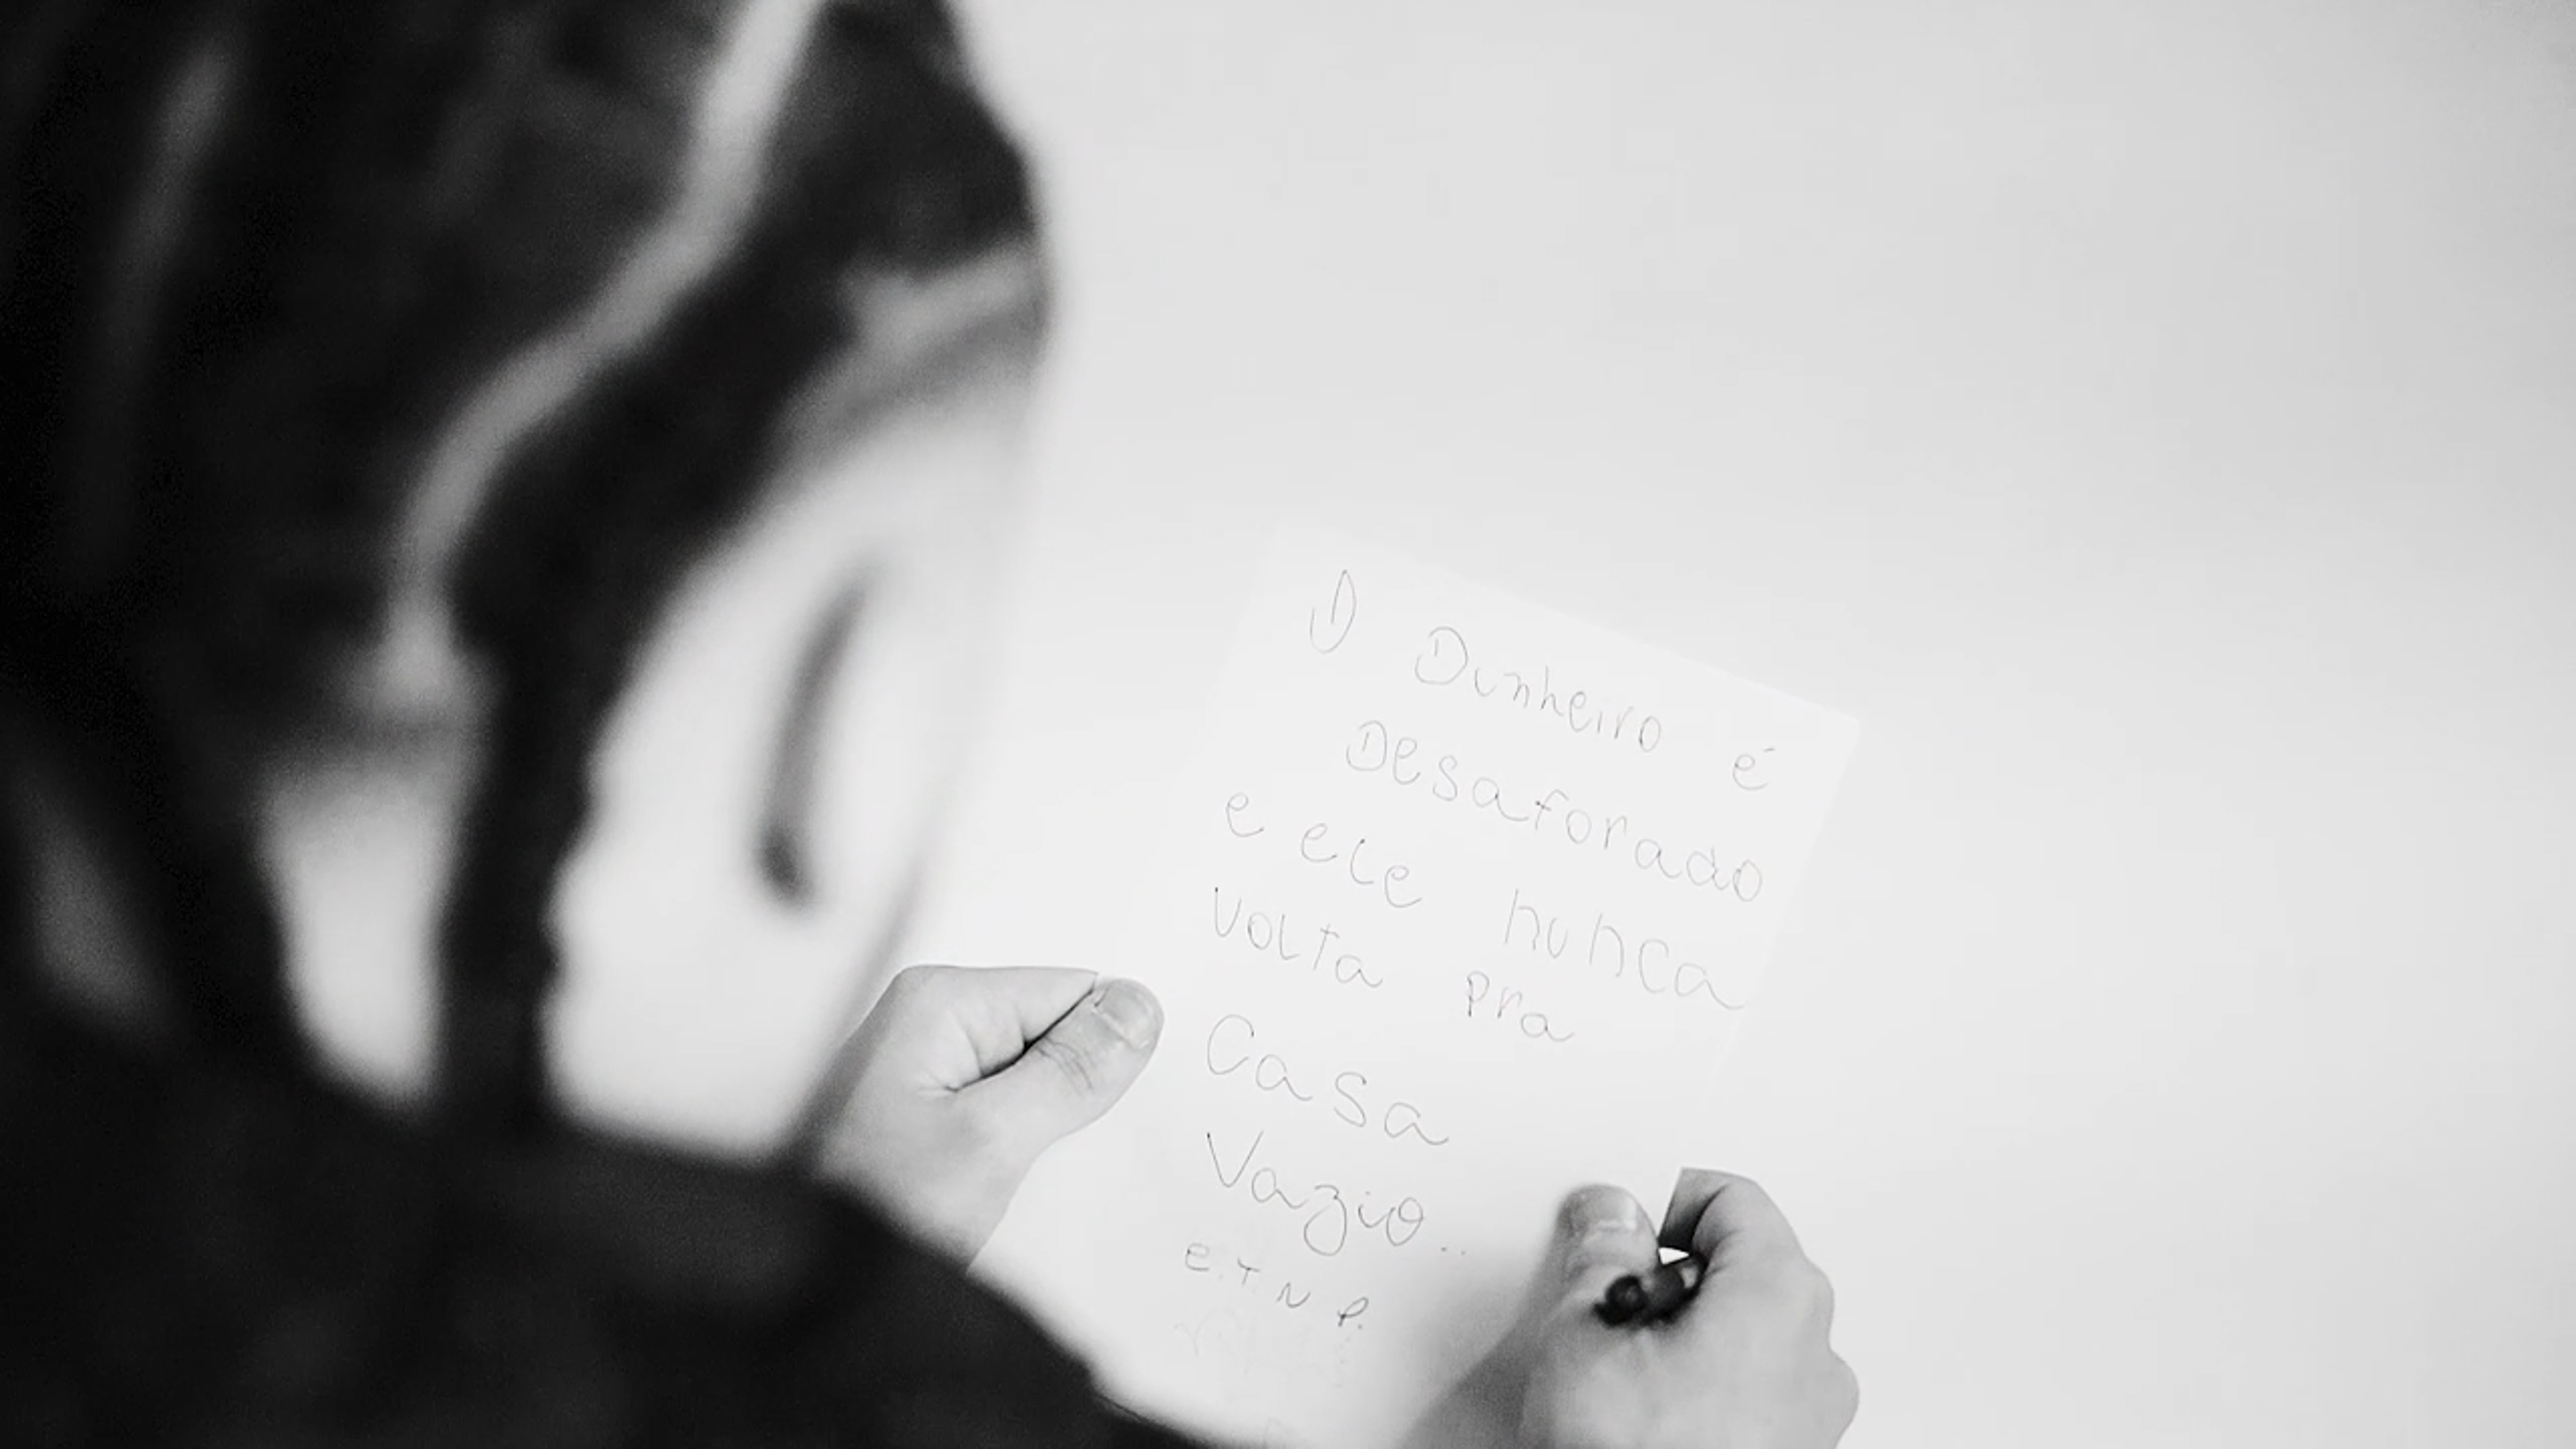 O Dinheiro é
Desaforado
e ele nunca
volta pra
Casa
Vazio..
E.T N P.